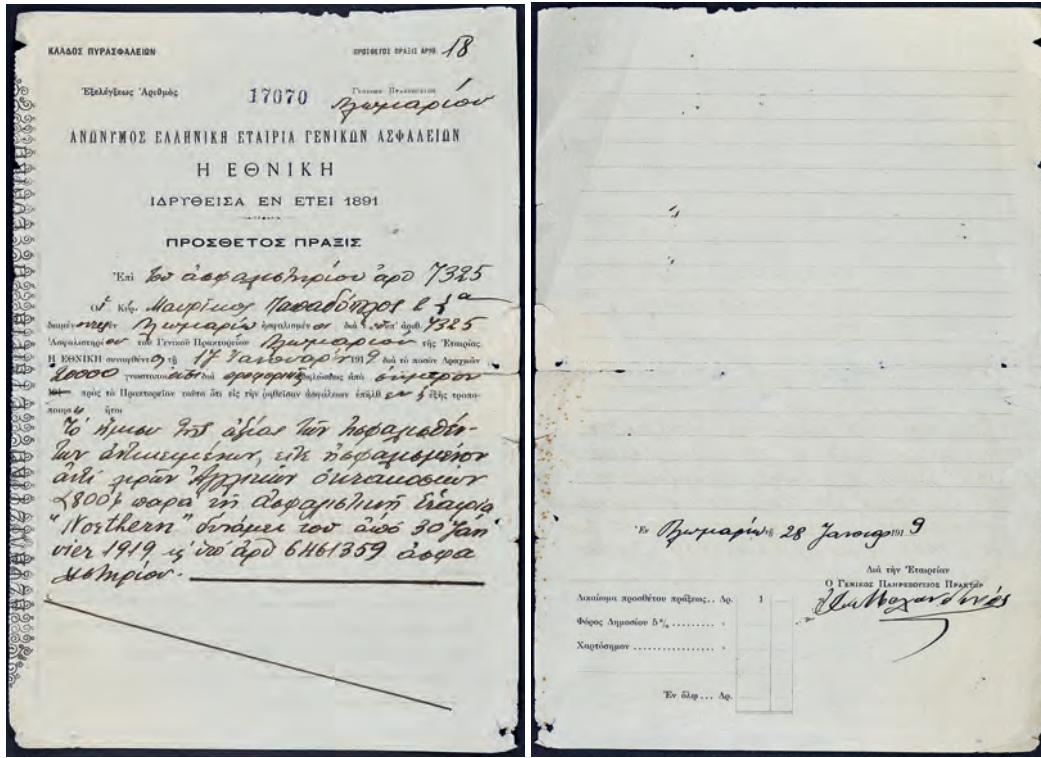 ΚΛΑΔΟΣ ΠΥΡΑΣΦΑΛΕΙΩΝ
ΠΡΟΣΘΕΤΟΣ ΠΡΑΞΙΣ ΑΡΙΘ. 18
Ἐξελέγξεως Ἀριθμὸς 17070
Γενικὸν Πρακτορεῖον
Πλωμαρίου
ΑΝΩΝΥΜΟΣ ΕΛΛΗΝΙΚΗ ΕΤΑΙΡΙΑ ΓΕΝΙΚΩΝ ΑΣΦΑΛΕΙΩΝ
Η ΕΘΝΙΚΗ
ΙΔΡΥΘΕΙΣΑ ΕΝ ΕΤΕΙ 1891
ΠΡΟΣΘΕΤΟΣ ΠΡΑΞΙΣ
Ἐπὶ τοῦ ἀσφαλιστηρίου ἀρθ 7325
Κύρ. Μαυρίκιος Παπαδόπλος
Πλωμαρίῳ ἠσφαλισμένοι διὰ τοῦ ὑπ' ἀριθ. 7325
Ἀσφαλιστηρίου τοῦ Γενικοῦ Πρακτορείου Πλωμαρίου τῆς Ἑταιρίας
Η ΕΘΝΙΚΗ συναφθέντος τῇ 17 Ἰανουαρ 1919 διὰ τὸ ποσὸν Δραχμῶν
20000 διὰ προφορικῆς δηλώσεως ἀπὸ σήμερον
191 πρὸς τὸ Πρακτορεῖον τοῦτο ὅτι εἰς τὴν ῥηθεῖσαν ἀσφάλειαν ἐπῆλθεν ἡ ἑξῆς τροπο-
ποίησις ἤτοι
Τὸ ἥμισυ τῆς ἀξίας τῶν ἀσφαλισθέν-
των ἀντικειμένων, εἶνε ἠσφαλισμένον
ἀντὶ λιρῶν Ἀγγλικῶν ὀκτακοσίων
£800 παρὰ τῇ ἀσφαλιστικῇ Ἑταιρίᾳ
"Northern" δυνάμει τοῦ ἀπὸ 30 Jan
vier 1919 ὑπὸ ἀρθ 6461359 ἀσφα
λιστηρίου.
Ἐν Πλωμαρίῳ τῇ 28 Ἰανουαρ 1919
Διὰ τὴν Ἑταιρείαν
Ο ΓΕΝΙΚΟΣ ΠΛΗΡΕΞΟΥΣΙΟΣ ΠΡΑΚΤΩΡ
Δικαίωμα προσθέτου πράξεως.. Δρ. 1
Φόρος Δημοσίου 5%.........»
Χαρτόσημον................»
Ἐν ὅλῳ... Δρ.